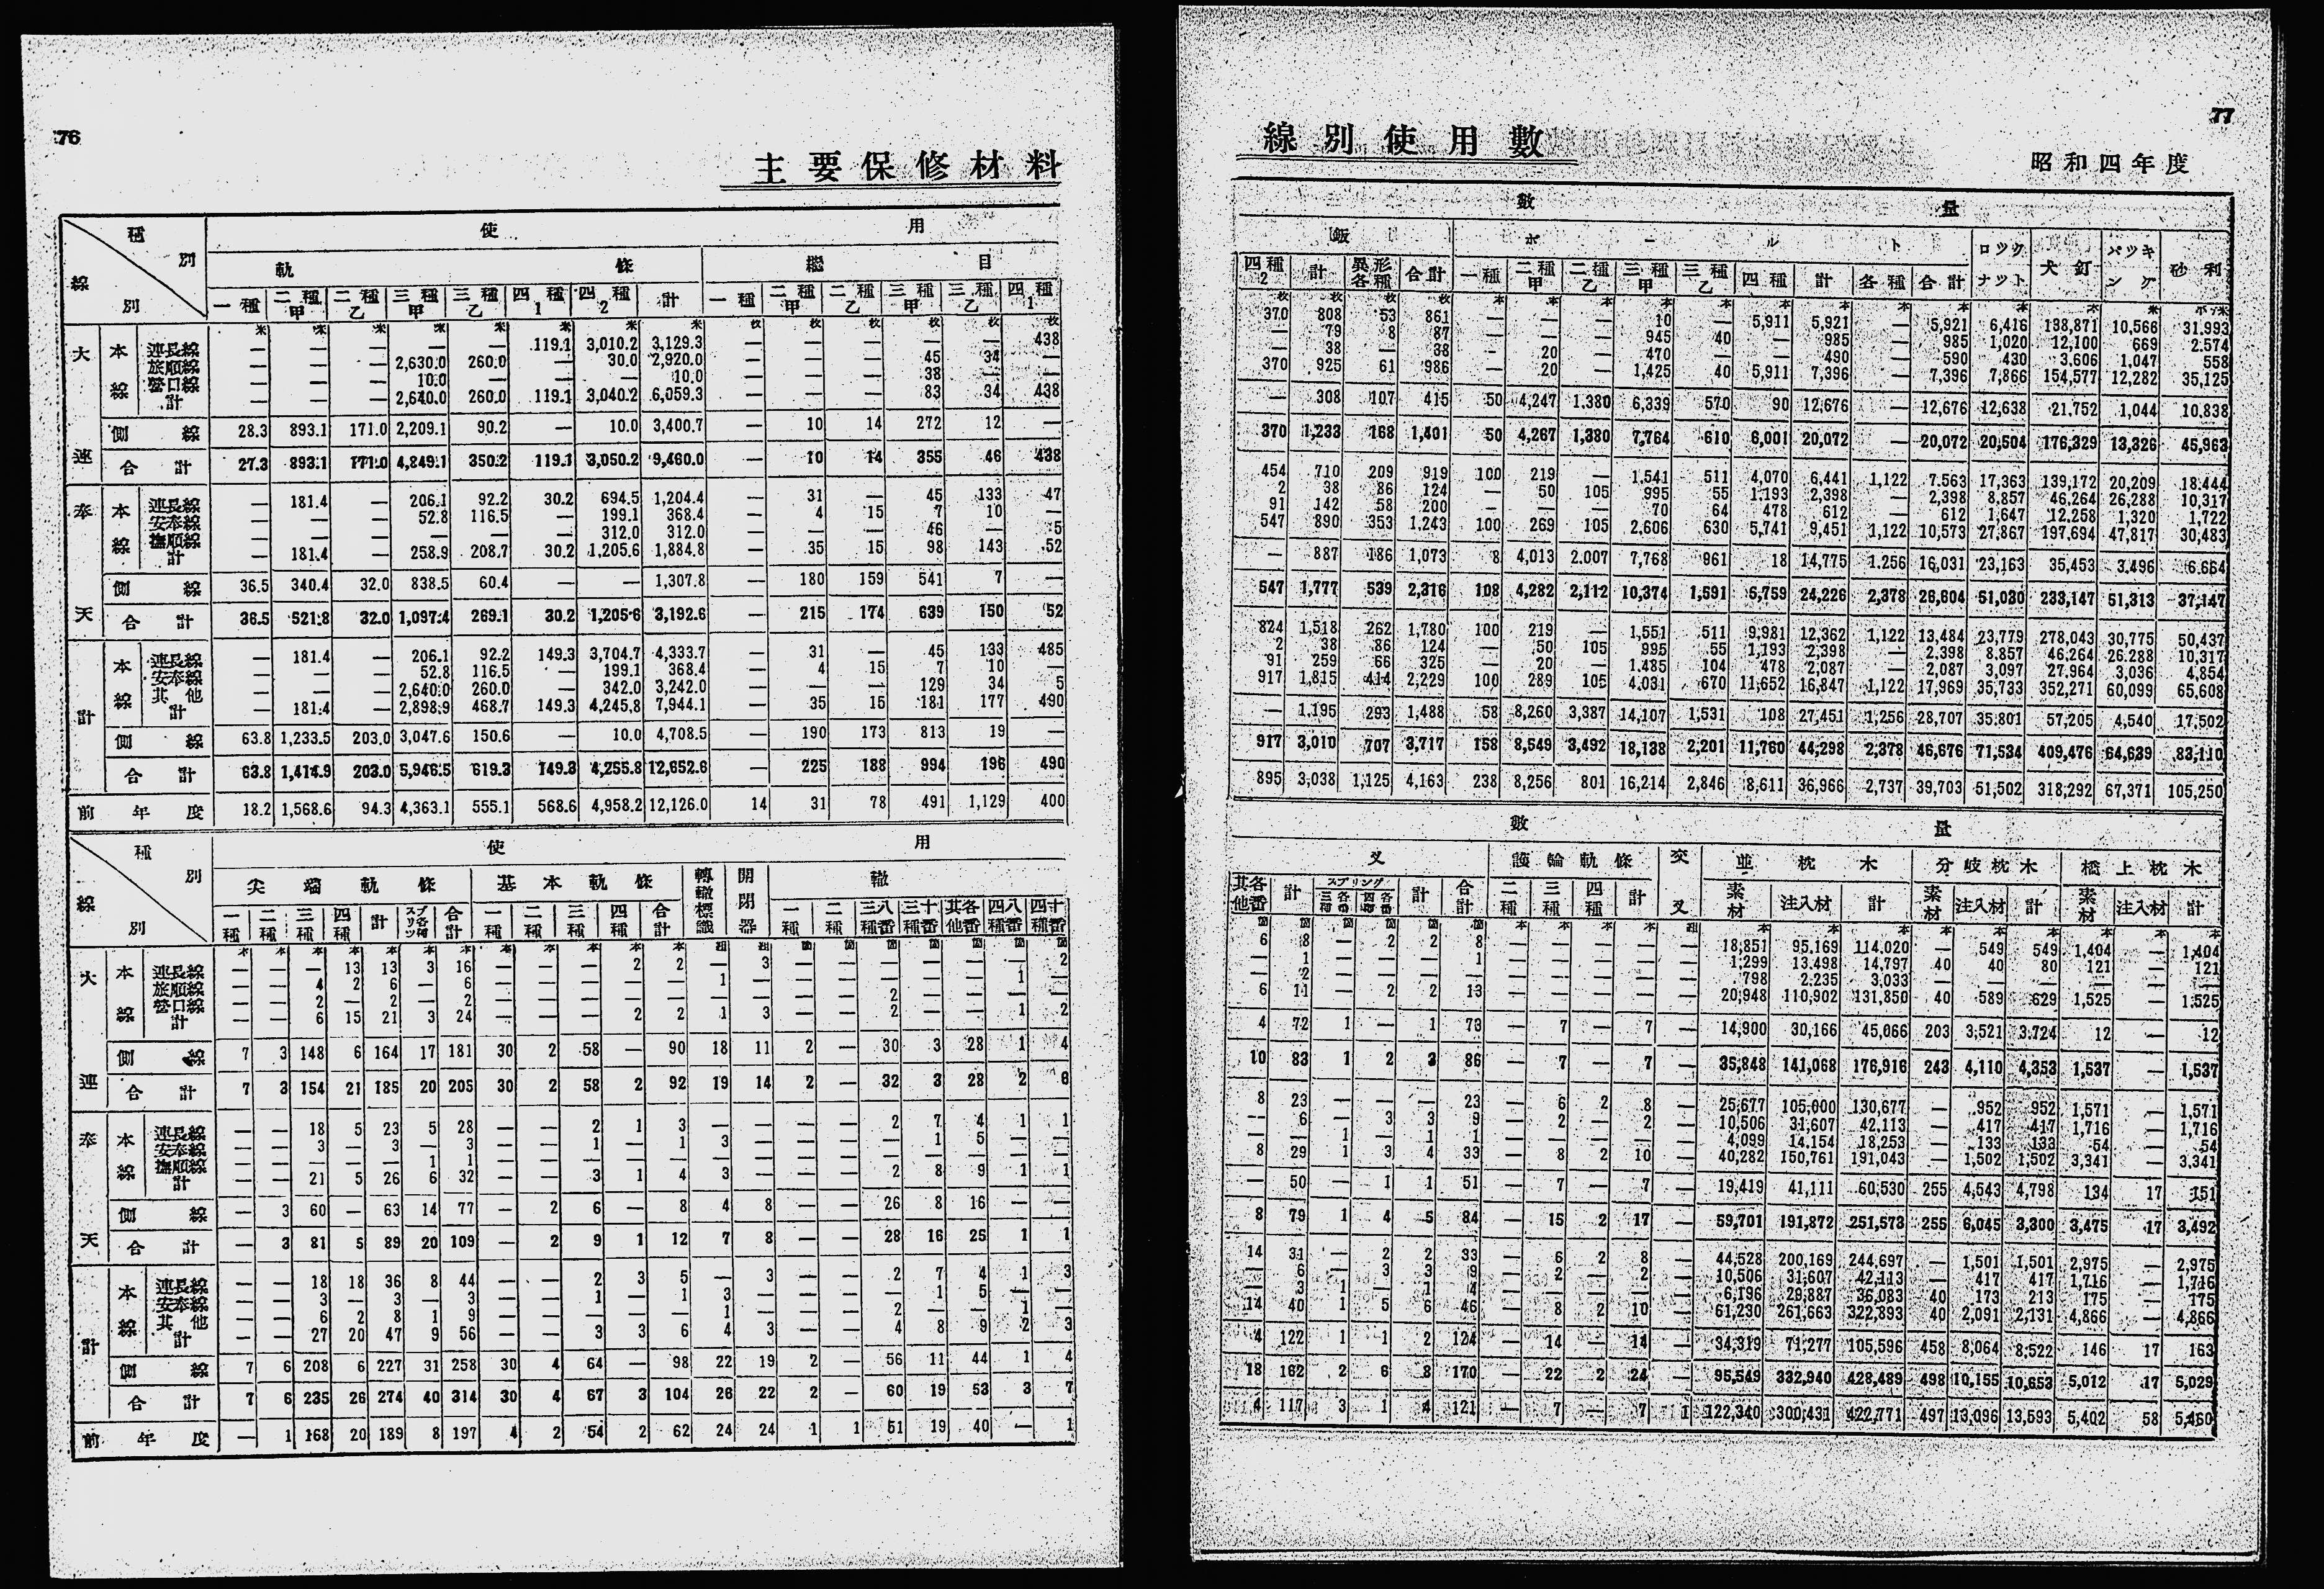 76
主要保修材料
種別
線別
使用
軌條
繼目
一種 二種甲 二種乙 三種甲 三種乙 四種1 四種2 計 一種 二種甲 二種乙 三種甲 三種乙 四種1
米 米 米 米 米 米 米 米 枚 枚 枚 枚 枚 枚
大連 本線 連長線 — — — — — 119.1 3,010.2 3,129.3 — — — — — 438
旅順線 — — — 2,630.0 260.0 — 30.0 2,920.0 — — — 45 34 —
營口線 — — — 10.0 — — — 10.0 — — — 38 — —
計 — — — 2,640.0 260.0 119.1 3,040.2 6,059.3 — — — 83 34 438
側線 28.3 893.1 171.0 2,209.1 90.2 — 10.0 3,400.7 — 10 14 272 12 —
合計 27.3 893.1 171.0 4,849.1 350.2 119.1 3,050.2 9,460.0 — 10 14 355 46 438
奉天 本線 連長線 — 181.4 — 206.1 92.2 30.2 694.5 1,204.4 — 31 — 45 133 47
安奉線 — — — 52.8 116.5 — 199.1 368.4 — 4 15 7 10 —
撫順線 — — — — — — 312.0 312.0 — — — 46 — 5
計 — 181.4 — 258.9 208.7 30.2 1,205.6 1,884.8 — 35 15 98 143 52
側線 36.5 340.4 32.0 838.5 60.4 — — 1,307.8 — 180 159 541 7 —
合計 36.5 521.8 32.0 1,097.4 269.1 30.2 1,205.6 3,192.6 — 215 174 639 150 52
計 本線 連長線 — 181.4 — 206.1 92.2 149.3 3,704.7 4,333.7 — 31 — 45 133 485
安奉線 — — — 52.8 116.5 — 199.1 368.4 — 4 15 7 10 —
其他 — — — 2,640.0 260.0 — 342.0 3,242.0 — — — 129 34 5
計 — 181.4 — 2,898.9 468.7 149.3 4,245.8 7,944.1 — 35 15 181 177 490
側線 63.8 1,233.5 203.0 3,047.6 150.6 — 10.0 4,708.5 — 190 173 813 19 —
合計 63.8 1,414.9 203.0 5,946.5 619.3 149.3 4,255.8 12,652.6 — 225 188 994 196 490
前年度 18.2 1,568.6 94.3 4,363.1 555.1 568.6 4,958.2 12,126.0 14 31 78 491 1,129 400
種別
線別
使用
尖端軌條 基本軌條 轉轍標識 開閉器 轍
一種 二種 三種 四種 計 スプリング各種 合計 一種 二種 三種 四種 合計 一種 二種 三八種番 三十種番 其各他番 四八種番 四十種番
本 本 本 本 本 本 本 本 本 本 本 本 組 組 箇 箇 箇 箇 箇 箇 箇
大連 本線 連長線 — — — 13 13 3 16 — — — 2 2 — 3 — — — — — — 2
旅順線 — — 4 2 6 — 6 — — — — — 1 — — — — — — 1 —
營口線 — — 2 — 2 — 2 — — — — — — — — — 2 — — — —
計 — — 6 15 21 3 24 — — — 2 2 1 3 — — 2 — — 1 2
側線 7 3 148 6 164 17 181 30 2 58 — 90 18 11 2 — 30 3 28 1 4
合計 7 3 154 21 185 20 205 30 2 58 2 92 19 14 2 — 32 3 28 2 6
奉天 本線 連長線 — — 18 5 23 5 28 — — 2 1 3 — — — — 2 7 4 1 1
安奉線 — — 3 — 3 — 3 — — 1 — 1 3 — — — — 1 5 — —
撫順線 — — — — — 1 1 — — — — — — — — — — — — — —
計 — — 21 5 26 6 32 — — 3 1 4 3 — — — 2 8 9 1 1
側線 — 3 60 — 63 14 77 — 2 6 — 8 4 8 — — 26 8 16 — —
合計 — 3 81 5 89 20 109 — 2 9 1 12 7 8 — — 28 16 25 1 1
計 本線 連長線 — — 18 18 36 8 44 — — 2 3 5 — 3 — — 2 7 4 1 3
安奉線 — — 3 — 3 — 3 — — 1 — 1 3 — — — — 1 5 — —
其他 — — 6 2 8 1 9 — — — — — 1 — — — 2 — — 1 —
計 — — 27 20 47 9 56 — — 3 3 6 4 3 — — 4 8 9 2 3
側線 7 6 208 6 227 31 258 30 4 64 — 98 22 19 2 — 56 11 44 1 4
合計 7 6 235 26 274 40 314 30 4 67 3 104 26 22 2 — 60 19 53 3 7
前年度 — 1 168 20 189 8 197 4 2 54 2 62 24 24 1 1 51 19 40 — 1
77
線別使用數
昭和四年度
數量
鈑 ボールト ロツクナツト 犬釘 パツキング 砂利
四種2 計 異形各種 合計 一種 二種甲 二種乙 三種甲 三種乙 四種 計 各種 合計
枚 枚 枚 枚 本 本 本 本 本 本 本 本 本 本 本
370 808 53 861 — — — 10 — 5,911 5,921 — 5,921 6,416 198,871 10,566 31,993
— 79 8 87 — — — 945 40 — 985 — 985 1,020 12,100 669 2.574
— 38 — 38 — 20 — 470 — — 490 — 590 430 3,606 1,047 558
370 925 61 986 — 20 — 1,425 40 5,911 7,396 — 7,396 7,866 154,577 12,282 35,125
— 308 107 415 50 4,247 1,380 6,339 570 90 12,676 — 12,676 12,638 21,752 1,044 10,838
370 1,233 168 1,401 50 4,267 1,380 7,764 610 6,001 20,072 — 20,072 20,504 176,329 13,326 45,963
454 710 209 919 100 219 — 1,541 511 4,070 6,441 1,122 7,563 17,363 139,172 20,209 18,444
2 38 86 124 — 50 105 995 55 1,193 2,398 — 2,398 8,857 46,264 26,288 10,317
91 142 58 200 — — — 70 64 478 612 — 612 1,647 12,258 1,320 1,722
547 890 353 1,243 100 269 105 2,606 630 5,741 9,451 1,122 10,573 27,867 197,694 47,817 30,483
— 887 186 1,073 8 4,013 2.007 7,768 961 18 14,775 1.256 16,031 23,163 35,453 3,496 6.664
547 1,777 539 2,316 108 4,282 2,112 10,374 1,591 5,759 24,226 2,378 26,604 51,030 233,147 51,313 37,147
824 1,518 262 1,780 100 219 — 1,551 511 9,981 12,362 1,122 13,484 23,779 278,043 30,775 50,437
2 38 86 124 — 50 105 995 55 1,193 2,398 — 2,398 8,857 46,264 26.288 10,317
91 259 66 325 — 20 — 1,485 104 478 2,087 — 2,087 3,097 27,964 3,036 4,854
917 1,815 414 2,229 100 289 105 4,031 670 11,652 16,847 1,122 17,969 35,733 352,271 60,099 65,608
— 1,195 293 1,488 58 8,260 3,387 14,107 1,531 108 27,451 1,256 28,707 35,801 57,205 4,540 17,502
917 3,010 707 3,717 158 8,549 3,492 18,138 2,201 11,760 44,298 2,378 46,676 71,534 409,476 64,639 83,110
895 3,038 1,125 4,163 238 8,256 801 16,214 2,846 8,611 36,966 2,737 39,703 51,502 318,292 67,371 105,250
數量
叉 護輪軌條 交叉 並枕木 分岐枕木 橋上枕木
其各他番 計 スプリング 三各種番 四各種番 計 合計 二種 三種 四種 計 素材 注入材 計 素材 注入材 計 素材 注入材 計
箇 箇 箇 箇 箇 箇 本 本 本 本 組 本 本 本 本 本 本 本 本 本
6 8 — 2 2 8 — — — — — 18,851 95,169 114,020 — 549 549 1,404 — 1,404
— 1 — — — 1 — — — — — 1,299 13,498 14,797 40 40 80 121 — 121
— 2 — — — — — — — — — 798 2,235 3,033 — — — — — —
6 11 — 2 2 13 — — — — — 20,948 110,902 131,850 40 589 629 1,525 — 1,525
4 72 1 — 1 73 — 7 — 7 — 14,900 30,166 45,066 203 3,521 3,724 12 — 12
10 83 1 2 3 86 — 7 — 7 — 35,848 141,068 176,916 243 4,110 4,353 1,537 — 1,537
8 23 — — — 23 — 6 2 8 — 25,677 105,000 130,677 — 952 952 1,571 — 1,571
— 6 — 3 3 9 — 2 — 2 — 10,506 31,607 42,113 — 417 417 1,716 — 1,716
— — 1 — 1 1 — — — — — 4,099 14,154 18,253 — 133 133 54 — 54
8 29 1 3 4 33 — 8 2 10 — 40,282 150,761 191,043 — 1,502 1,502 3,341 — 3,341
— 50 — 1 1 51 — 7 — 7 — 19,419 41,111 60,530 255 4,543 4,798 134 17 151
8 79 1 4 5 84 — 15 2 17 — 59,701 191,872 251,573 255 6,045 3,300 3,475 17 3,492
14 31 — 2 2 33 — 6 2 8 — 44,528 200,169 244,697 — 1,501 1,501 2,975 — 2,975
— 6 — 3 3 9 — 2 — 2 — 10,506 31,607 42,113 — 417 417 1,716 — 1,716
— 3 1 — 1 4 — — — — — 6,196 29,887 36,083 40 173 213 175 — 175
14 40 1 5 6 46 — 8 2 10 — 61,230 261,663 322,893 40 2,091 2,131 4,866 — 4,866
4 122 1 1 2 124 — 14 — 14 — 34,319 71,277 105,596 458 8,064 8,522 146 17 163
18 162 2 6 8 170 — 22 2 24 — 95,549 332,940 428,489 498 10,155 10,653 5,012 17 5,029
4 117 3 1 4 121 — 7 — 7 1 122,340 300,431 422,771 497 13,096 13,593 5,402 58 5,460